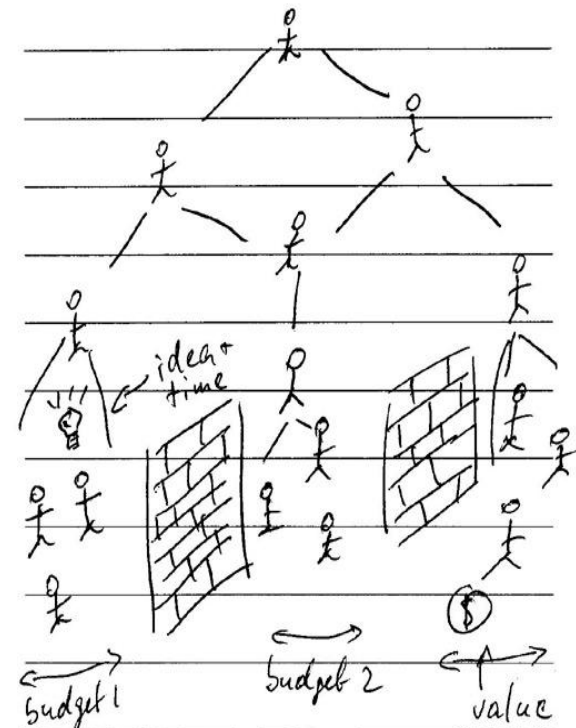 idea +
time
$
budget 1
budget 2
value